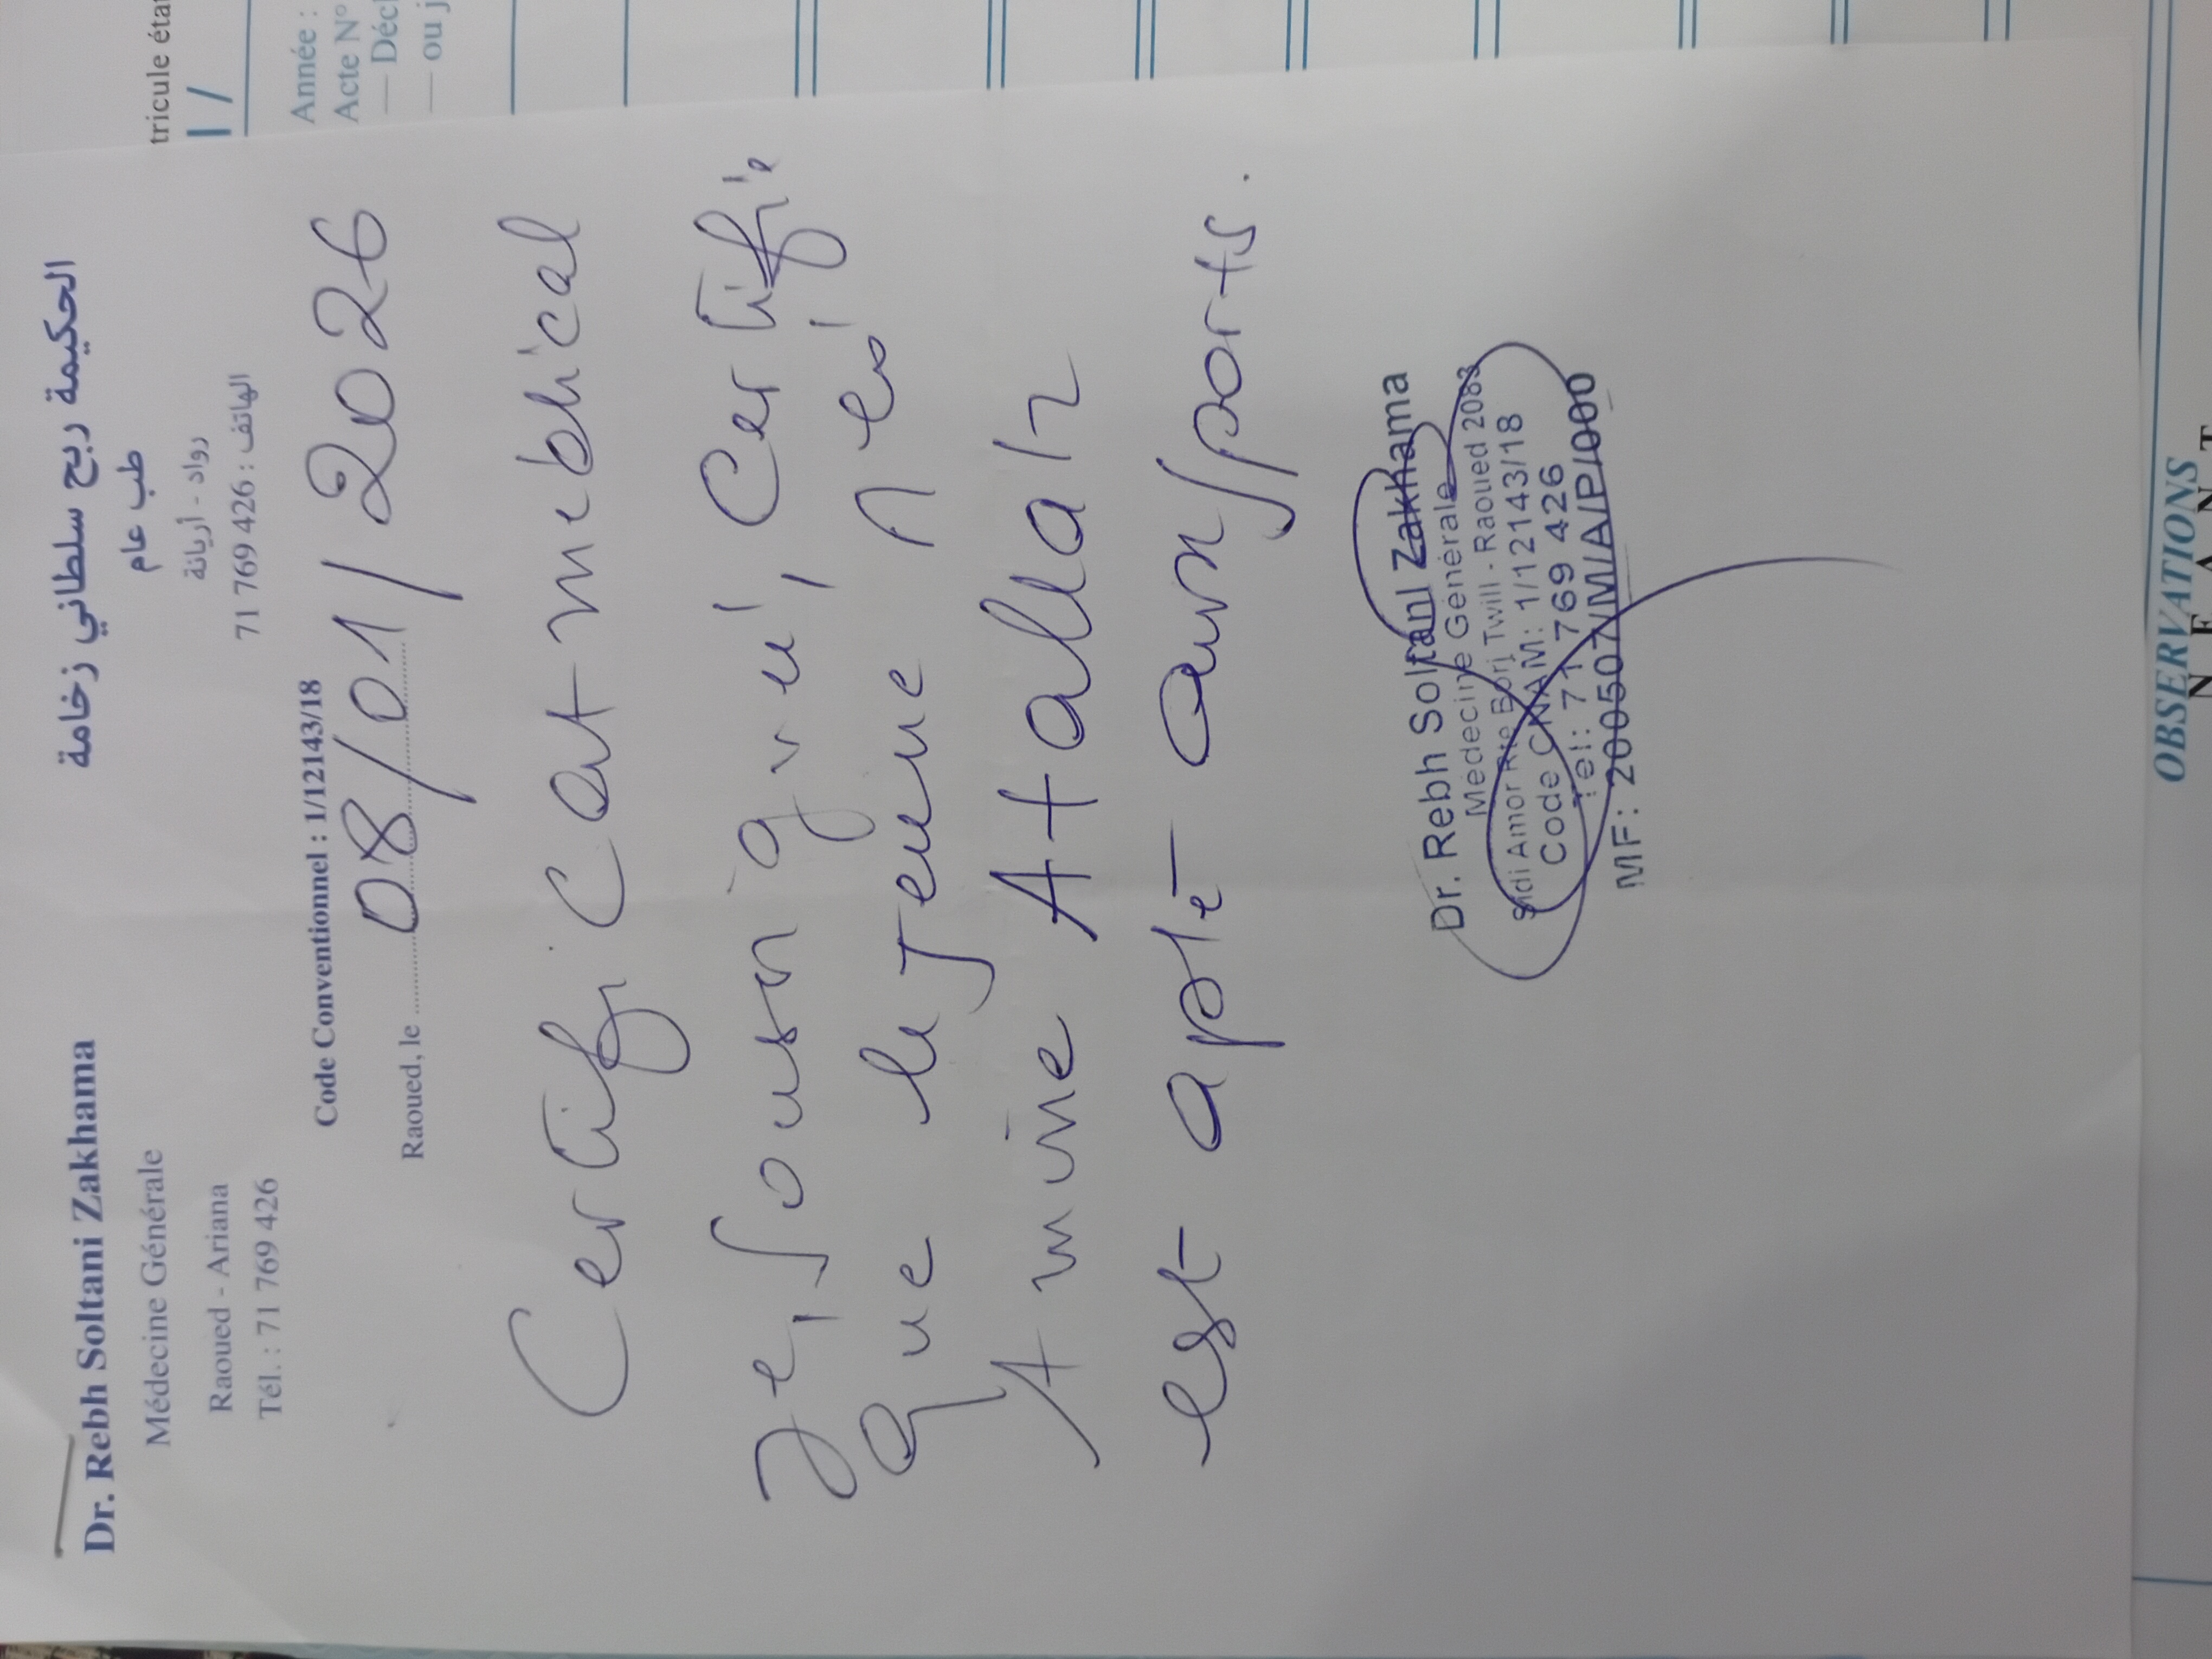 Dr. Rebh Soltani Zakhama
Médecine Générale
Raoued - Ariana
Tél. : 71 769 426
الحكيمة ربح سلطاني زخامة
طب عام
رواد - أريانة
الهاتف : 426 769 71
Code Conventionnel : 1/12143/18
Raoued, le 08/01/2026
Certificat médical
Je, soussigné, Certifie
que le jeune, né
Amine Atallah
est apte aux sports.
Dr. Rebh Soltani Zakhama
Médecine Générale
Sidi Amor Rte Borj Twill - Raoued 2083
Code CNAM: 1/12143/18
Tel: 71 769 426
MF: 2005507/M/A/P/000
tricule éta
Année :
Acte N°
— Décl
— ou j
OBSERVATIONS
N E A N T